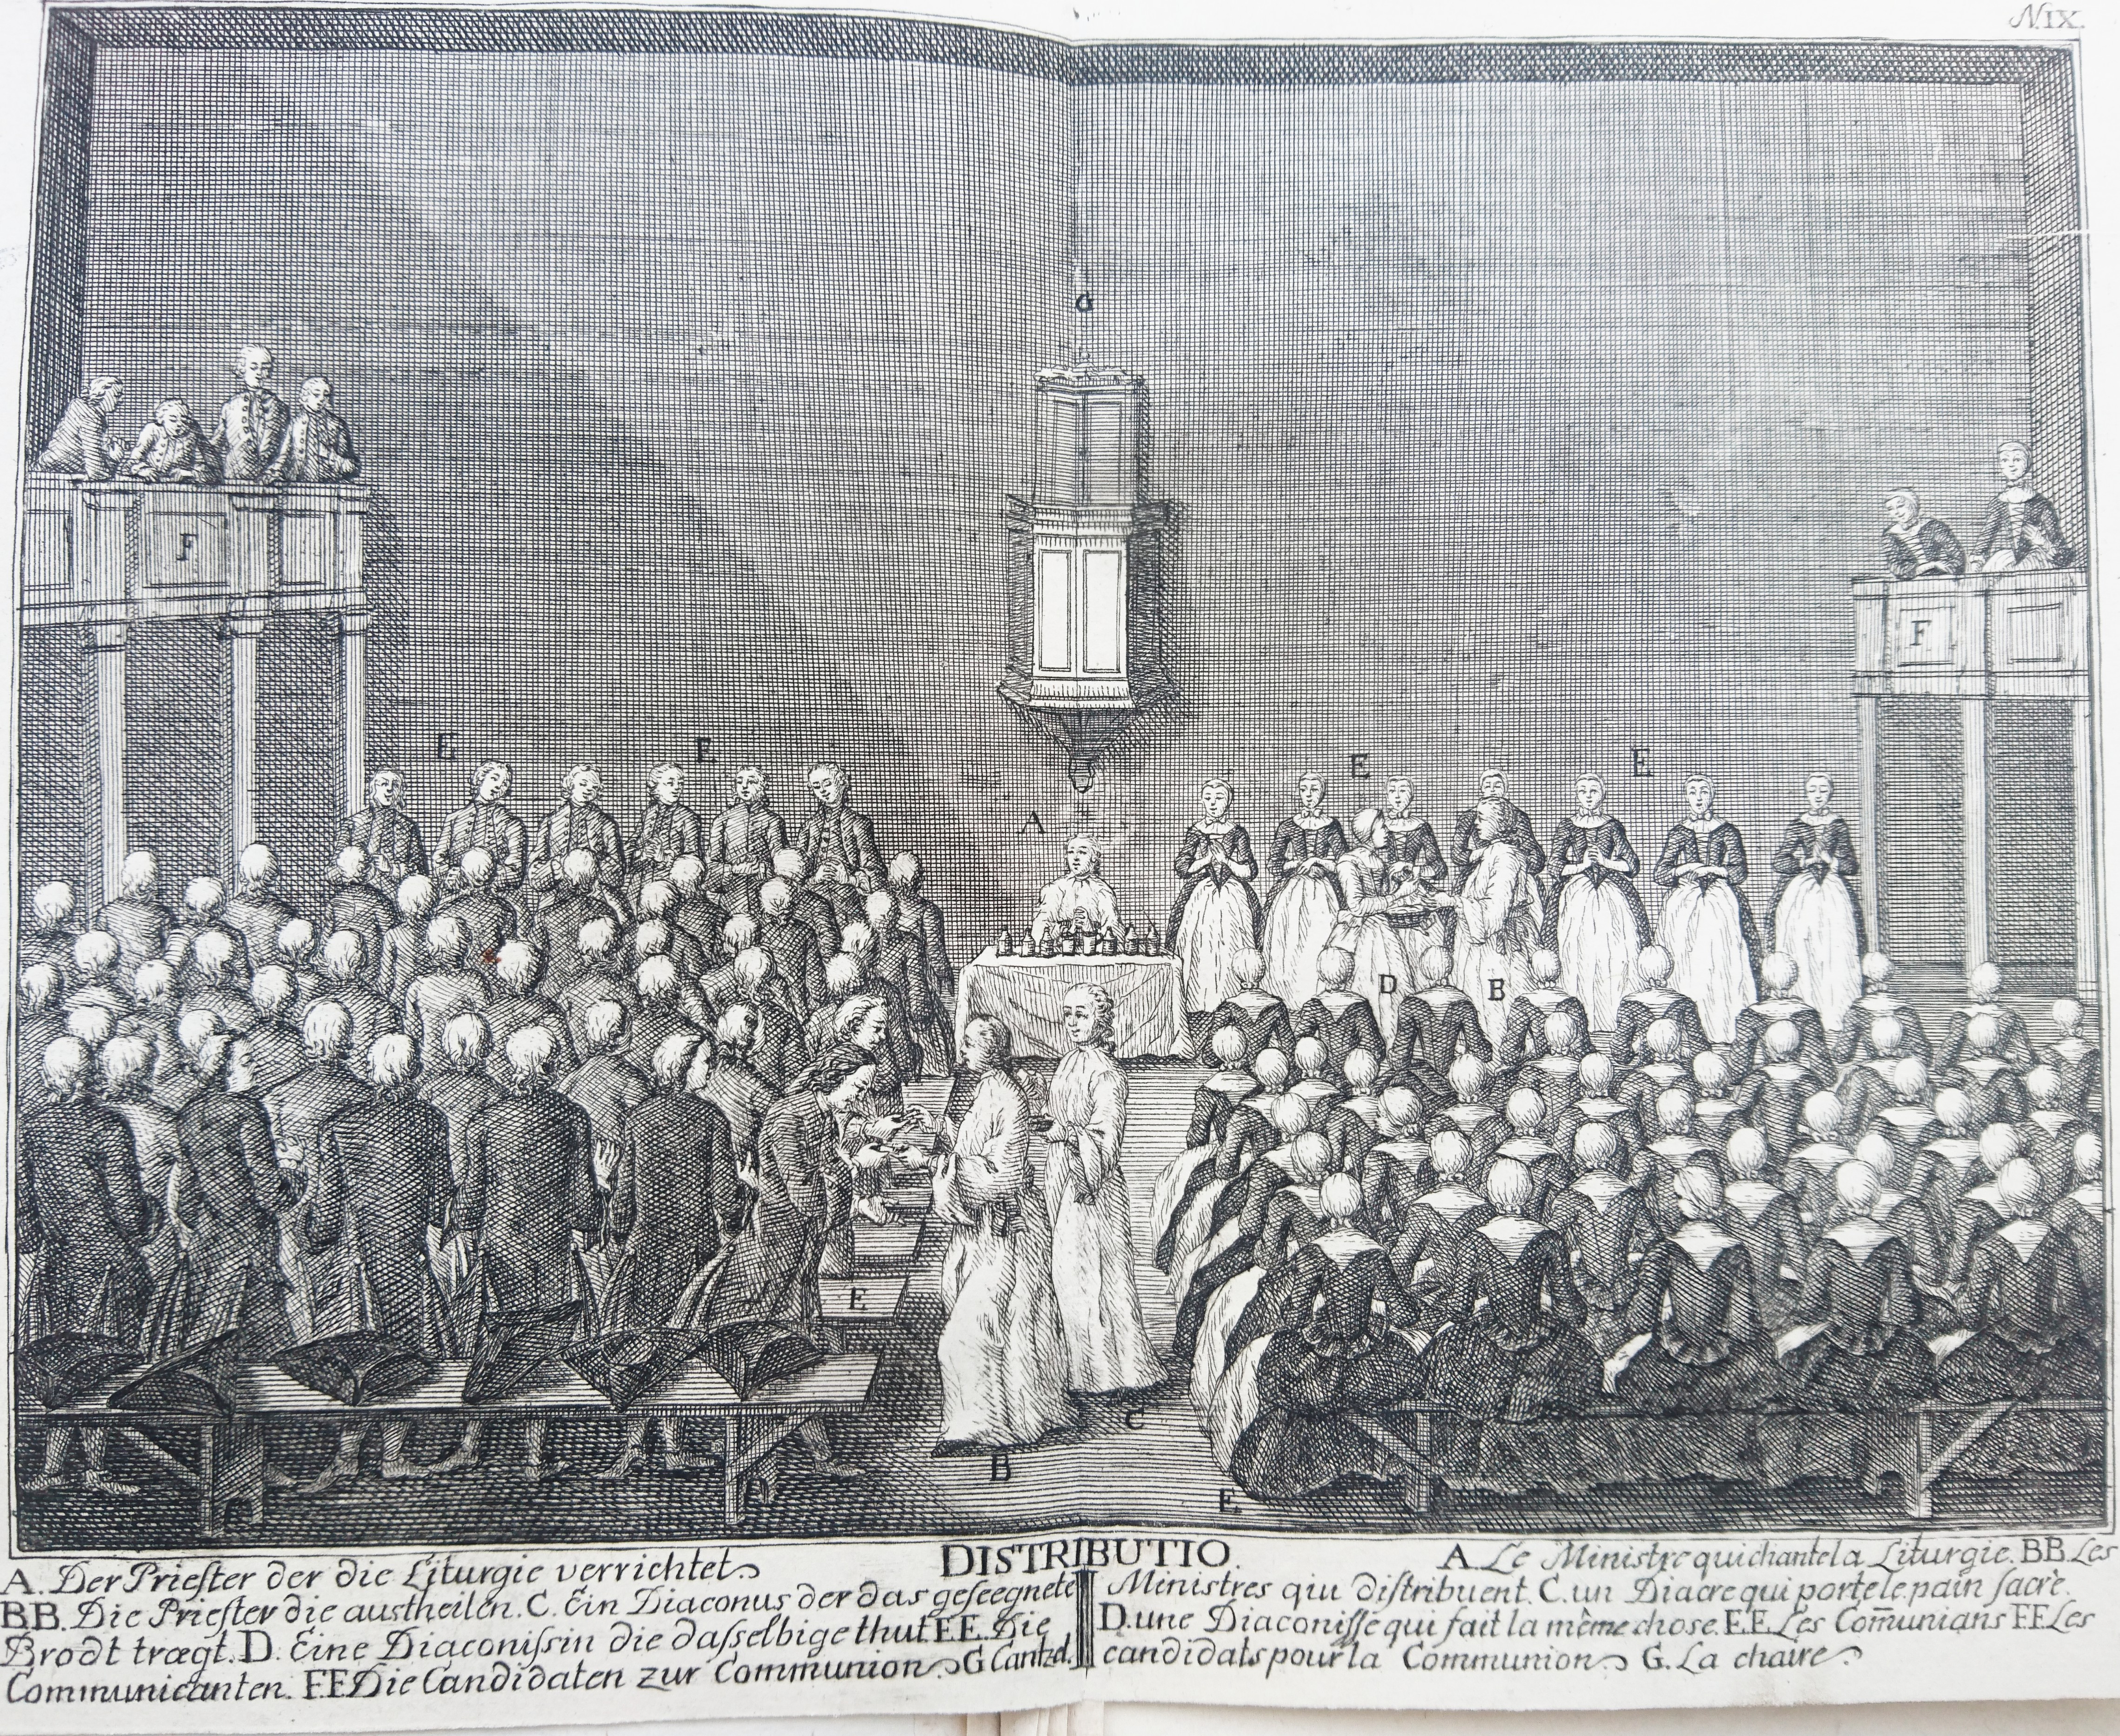 N.IX.
G
F
F
E
E
E
E
A
D
B
E
C
B
E
DISTRIBUTIO.
A. Der Prieſter der die Liturgie verrichtet
BB. Die Prieſter die austheilen. C. Ein Diaconus der das geſeegnete
Brodt trægt. D. Eine Diaconiſsin die daſselbige thut. E.E. Die
Communicanten. F.F Die Candidaten zur Communion G Cantzel.
A. Le Ministre qui chante la Liturgie. BB. Les
Ministres qiu diſtribuent. C. un Diacre qui porte le pain ſacrè.
D. une Diaconiſſe qui fait la même chose. E.E. Les Com̄unians F.F. Les
candidats pour la Communion G. La chaire